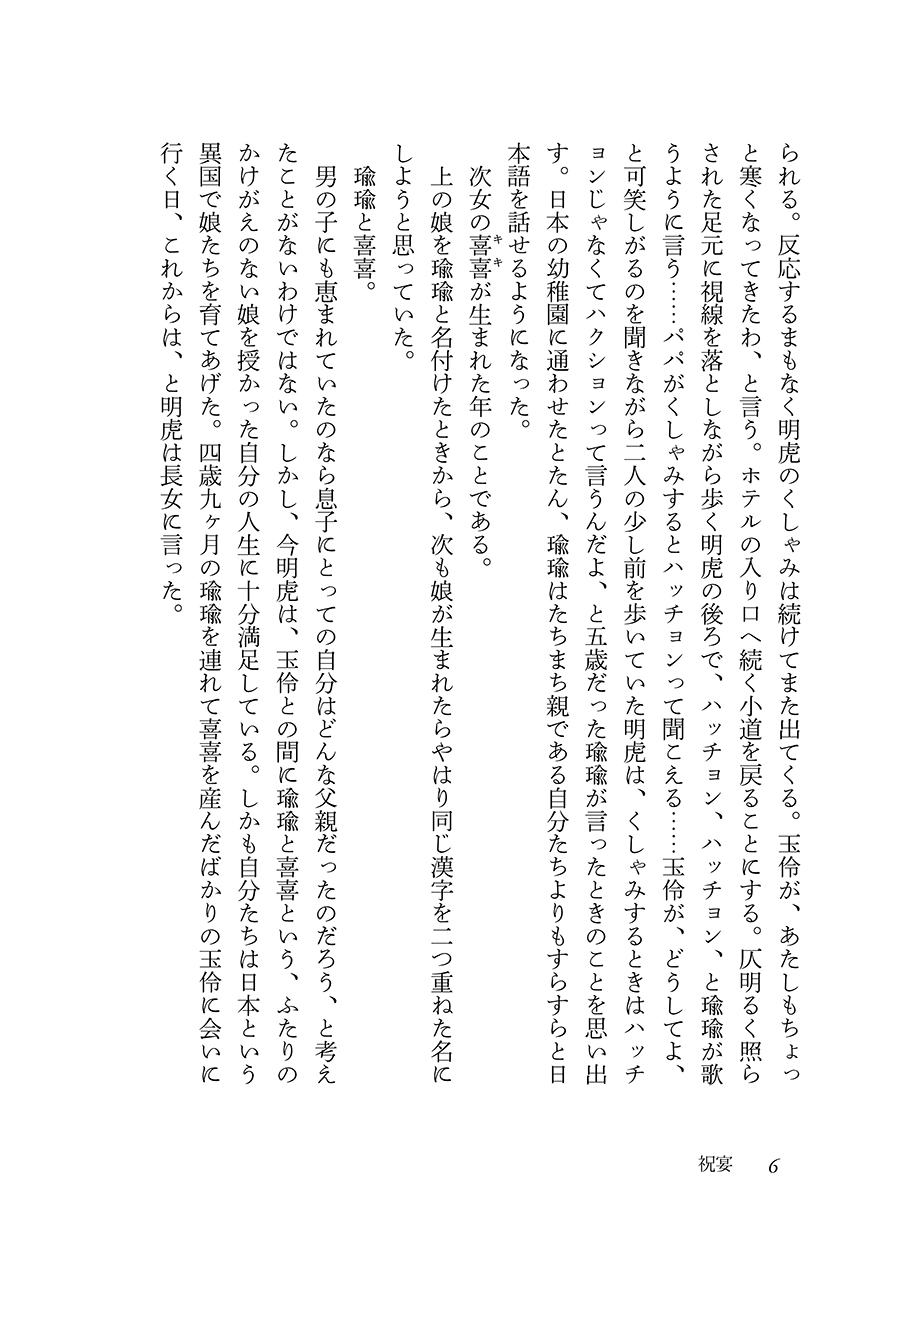 られる。反応するまもなく明虎のくしゃみは続けてまた出てくる。玉伶が、あたしもちょっ
と寒くなってきたわ、と言う。ホテルの入り口へ続く小道を戻ることにする。仄明るく照ら
された足元に視線を落としながら歩く明虎の後ろで、ハッチョン、ハッチョン、と瑜瑜が歌
うように言う……パパがくしゃみするとハッチョンって聞こえる……玉伶が、どうしてよ、
と可笑しがるのを聞きながら二人の少し前を歩いていた明虎は、くしゃみするときはハッチ
ョンじゃなくてハクションって言うんだよ、と五歳だった瑜瑜が言ったときのことを思い出
す。日本の幼稚園に通わせたとたん、瑜瑜はたちまち親である自分たちよりもすらすらと日
本語を話せるようになった。
次女の喜喜が生まれた年のことである。
キキ
上の娘を瑜瑜と名付けたときから、次も娘が生まれたらやはり同じ漢字を二つ重ねた名に
しようと思っていた。
瑜瑜と喜喜。
男の子にも恵まれていたのなら息子にとっての自分はどんな父親だったのだろう、と考え
たことがないわけではない。しかし、今明虎は、玉伶との間に瑜瑜と喜喜という、ふたりの
かけがえのない娘を授かった自分の人生に十分満足している。しかも自分たちは日本という
異国で娘たちを育てあげた。四歳九ヶ月の瑜瑜を連れて喜喜を産んだばかりの玉伶に会いに
行く日、これからは、と明虎は長女に言った。
祝宴
6